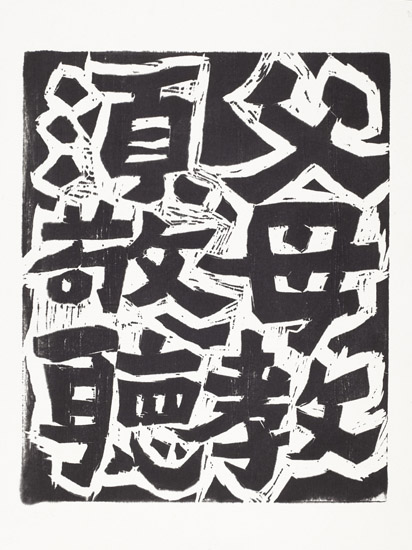 父母教
須敬聽